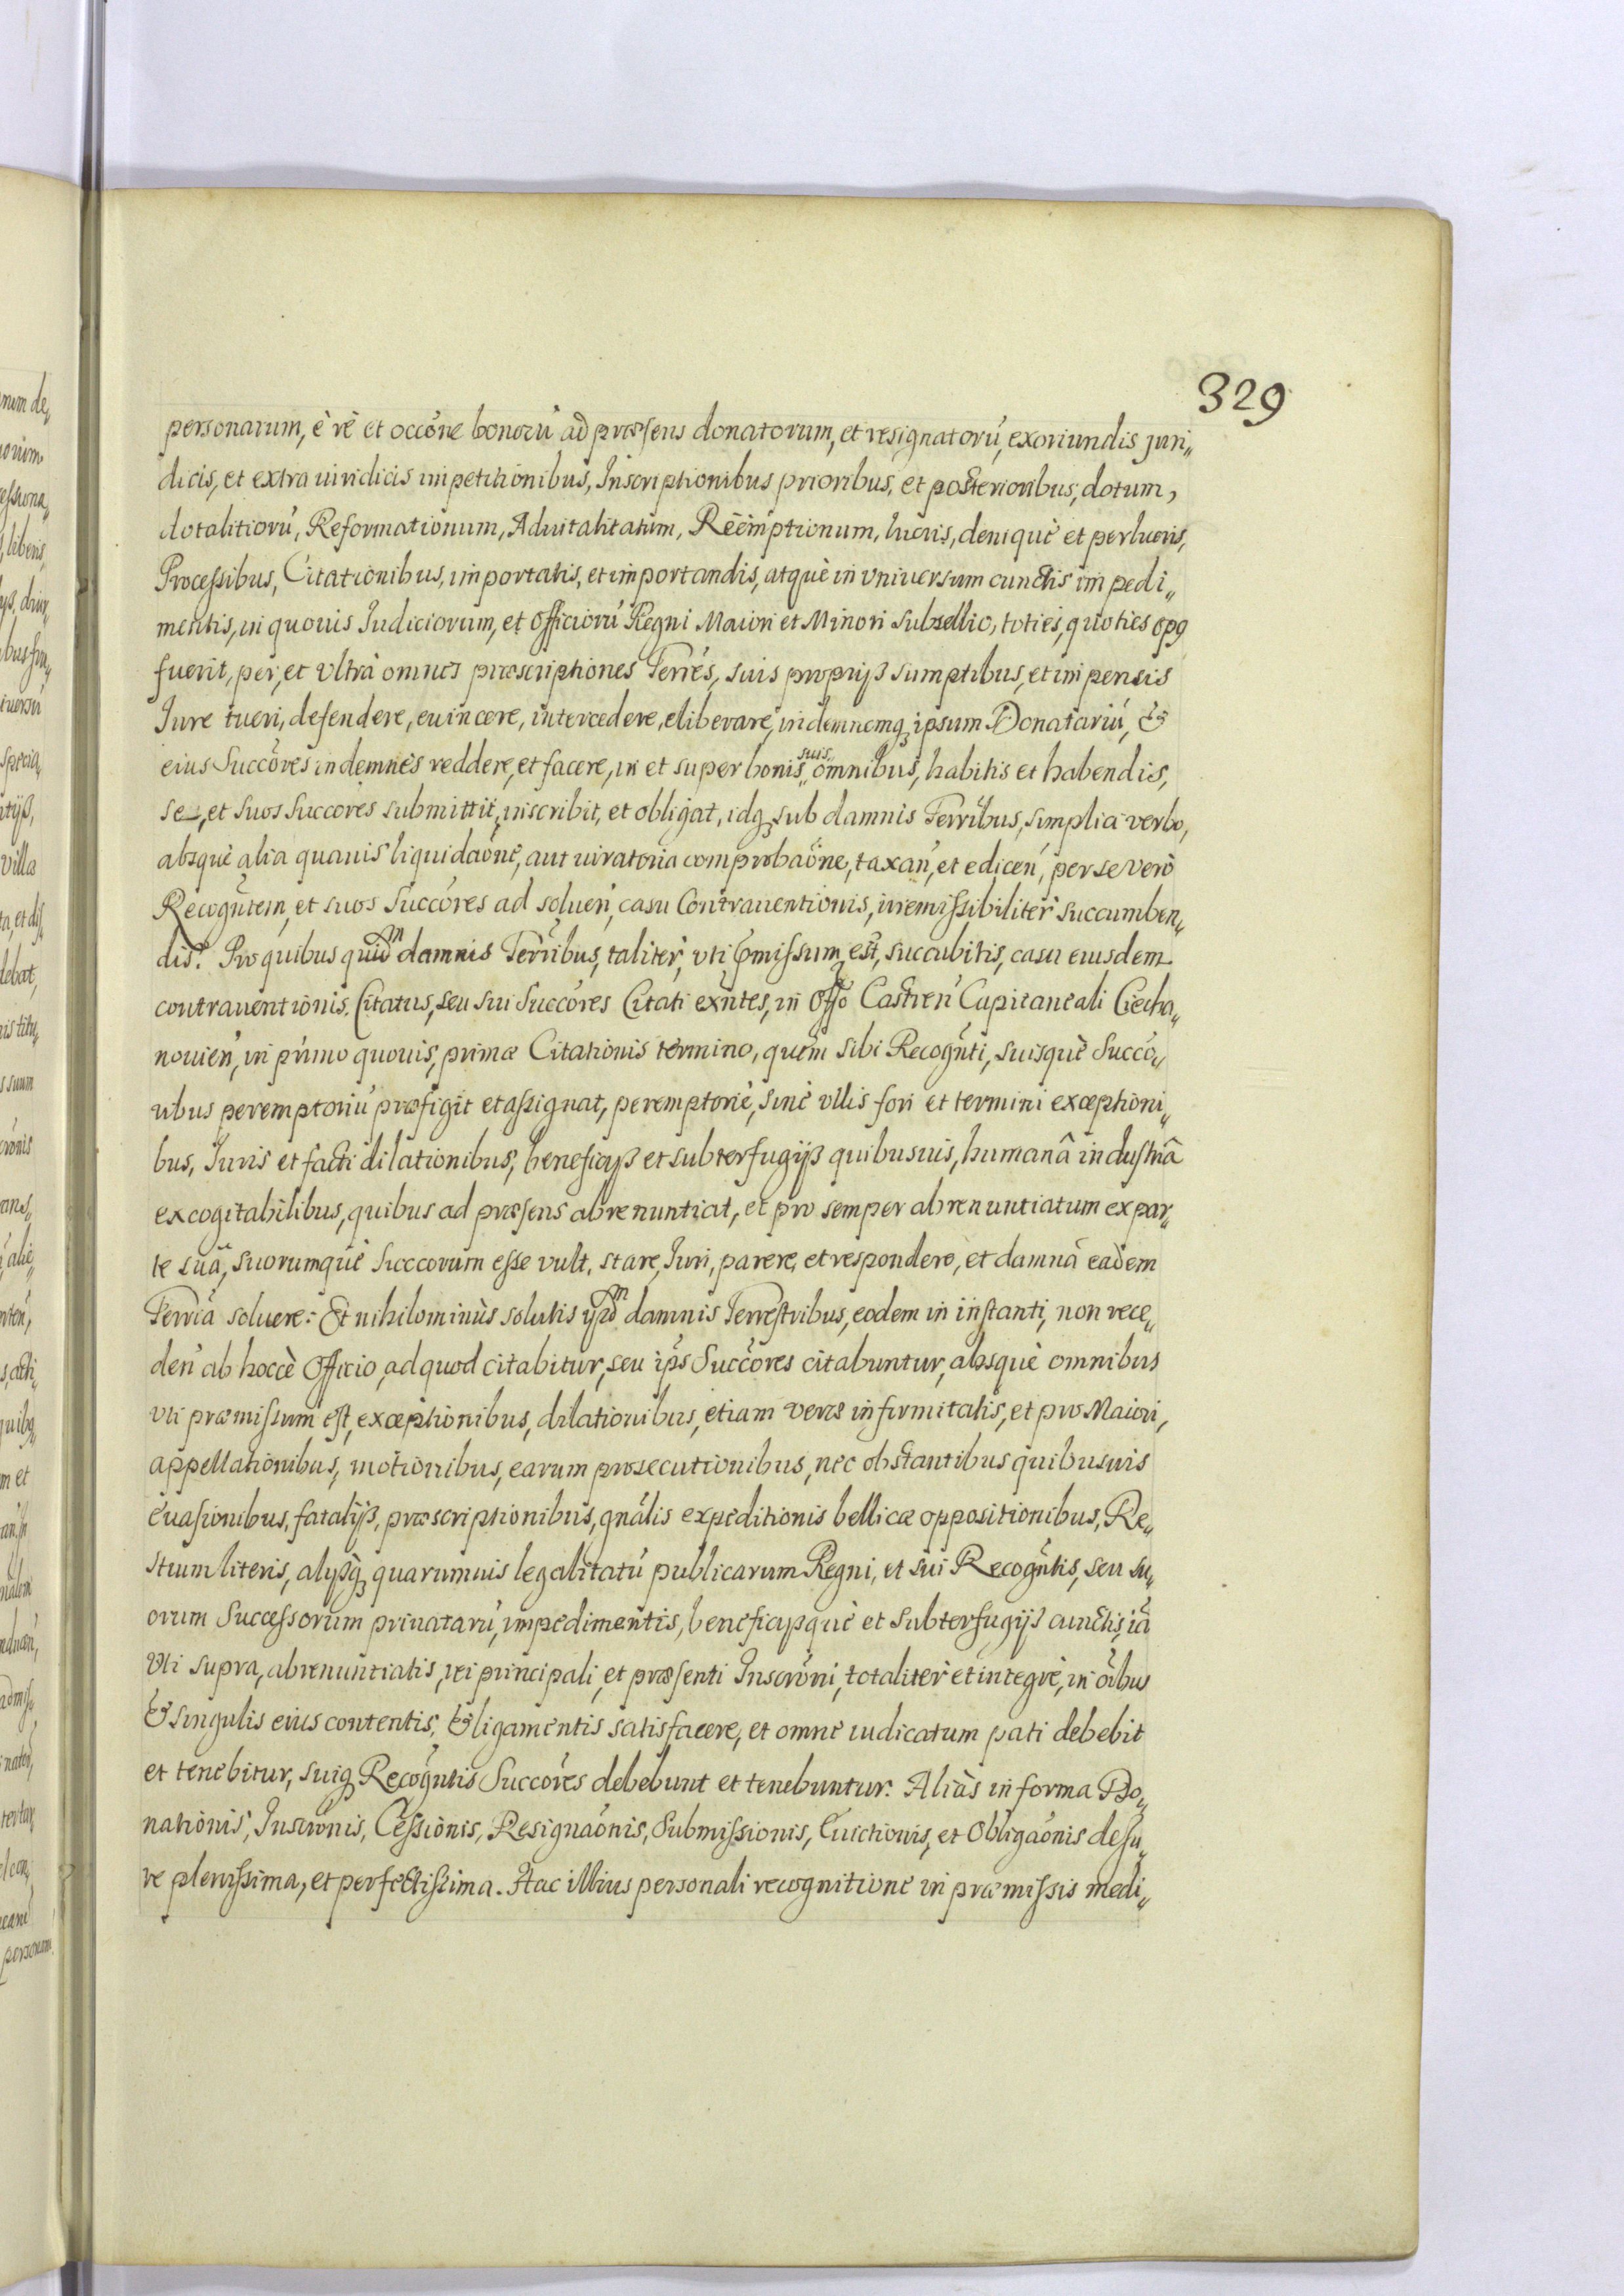 329
personarum, è rè et occóne bonorú ad præsens donatorum, et resignatorú, exoriundis juri„
dicis, et extra iuridicis impetitionibus, Inscriptionibus prioribus, et posterioribus, dotum,
dotalitiorú, Reformationum, Aduitalitatum, Reémptionum, lucris, deniquè et perlucris,
Processibus, Citationibus, importatis, et importandis, atquè in vniuersum cunctis impedi„
mentis, in quouis Iudiciorum, et Officiorú Regni Maiori et Minori subsellio, toties, quoties opꝯ
fuerit, per, et vltrà omnes præscriptiones Terrés, suis proprijs sumptibus, et impensis
Iure tueri, defendere, euincere, intercedere, eliberare, indemnemqꝫ ipsum Donatariú, &
eius Succóres indemnes reddere, et facere, in et super bonis suis omnibus, habitis et habendis,
se, et suos Succores submittit, inscribit, et obligat, idqꝫ sub damnis Terríbus, simplici verbo,
absquè alia quauis liquidaóne, aut iuratoria comprobaóne, taxań, et ediceń, per se verò
Recogñtem, et suos Succóres ad solueń, casu Contrauentionis, irremissibiliter succumben„
dis. Pro quibus quid͠m damnis Terríbus, taliter, vti p̱missum est, succubitis, casu eiusdem
contrauentionis. Citatus, seu sui Succóres Citati exñtes, in Offo Castreń Capitaneali Ciecha„
nouień, in primo quouis, primæ Citationis termino, quem sibi Recogñti, suisquè Succó„
ribus peremptoriú præfigit et assignat, peremptoriè, sinè vllis fori et termini exceptioni„
bus, Iuris et facti dilationibus, beneficijs et subterfugijs quibusuis, humanâ industriâ
excogitabilibus, quibus ad præsens abrenuntiat, et pro semper abrenuntiatum ex par„
te suâ, suorumquè Succorum esse vult, stare, Iuri, parere, et respondere, et damna eadem
Terría soluere: Et nihilominùs solutis ijsd͠m damnis Terrestribus, eodem in instanti, non rece„
deń ab hoccè Officio, ad quod citabitur, seu ips̃ Succóres citabuntur, absquè omnibus
vti præmissum est, exceptionibus, dilationibus, etiam veræ infirmitatis, et pro Maiori,
appellationibus, motionibus, earum prosecutionibus, nec obstantibus quibusuis
èuasionibus, fatalijs, præscriptionibus, gnális expeditionis bellicæ oppositionibus, Re„
stium literis, alijsqꝫ quarumuis legalitatú publicarum Regni, et sui Recogñtis, seu su„
orum Successorum priuatarú, impedimentis, beneficijsquè et subterfugijs cunctis, iá
vti supra, abrenuntiatis, rei principali, et præsenti Inscróni, totaliter et integrè, in óibus
& singulis eius contentis, & ligamentis satisfacere, et omne iudicatum pati debebit
et tenebitur, suiqꝫ Recogñtis Succóres debebunt et tenebuntur. Aliàs in forma Do„
nationis, Inscrónis, Cessionis, Resignaónis, Submissionis, Euictionis, et Obligaónis de Iu„
re plenissima, et perfectissima. Hac illius personali recognitione in præmissis medi„